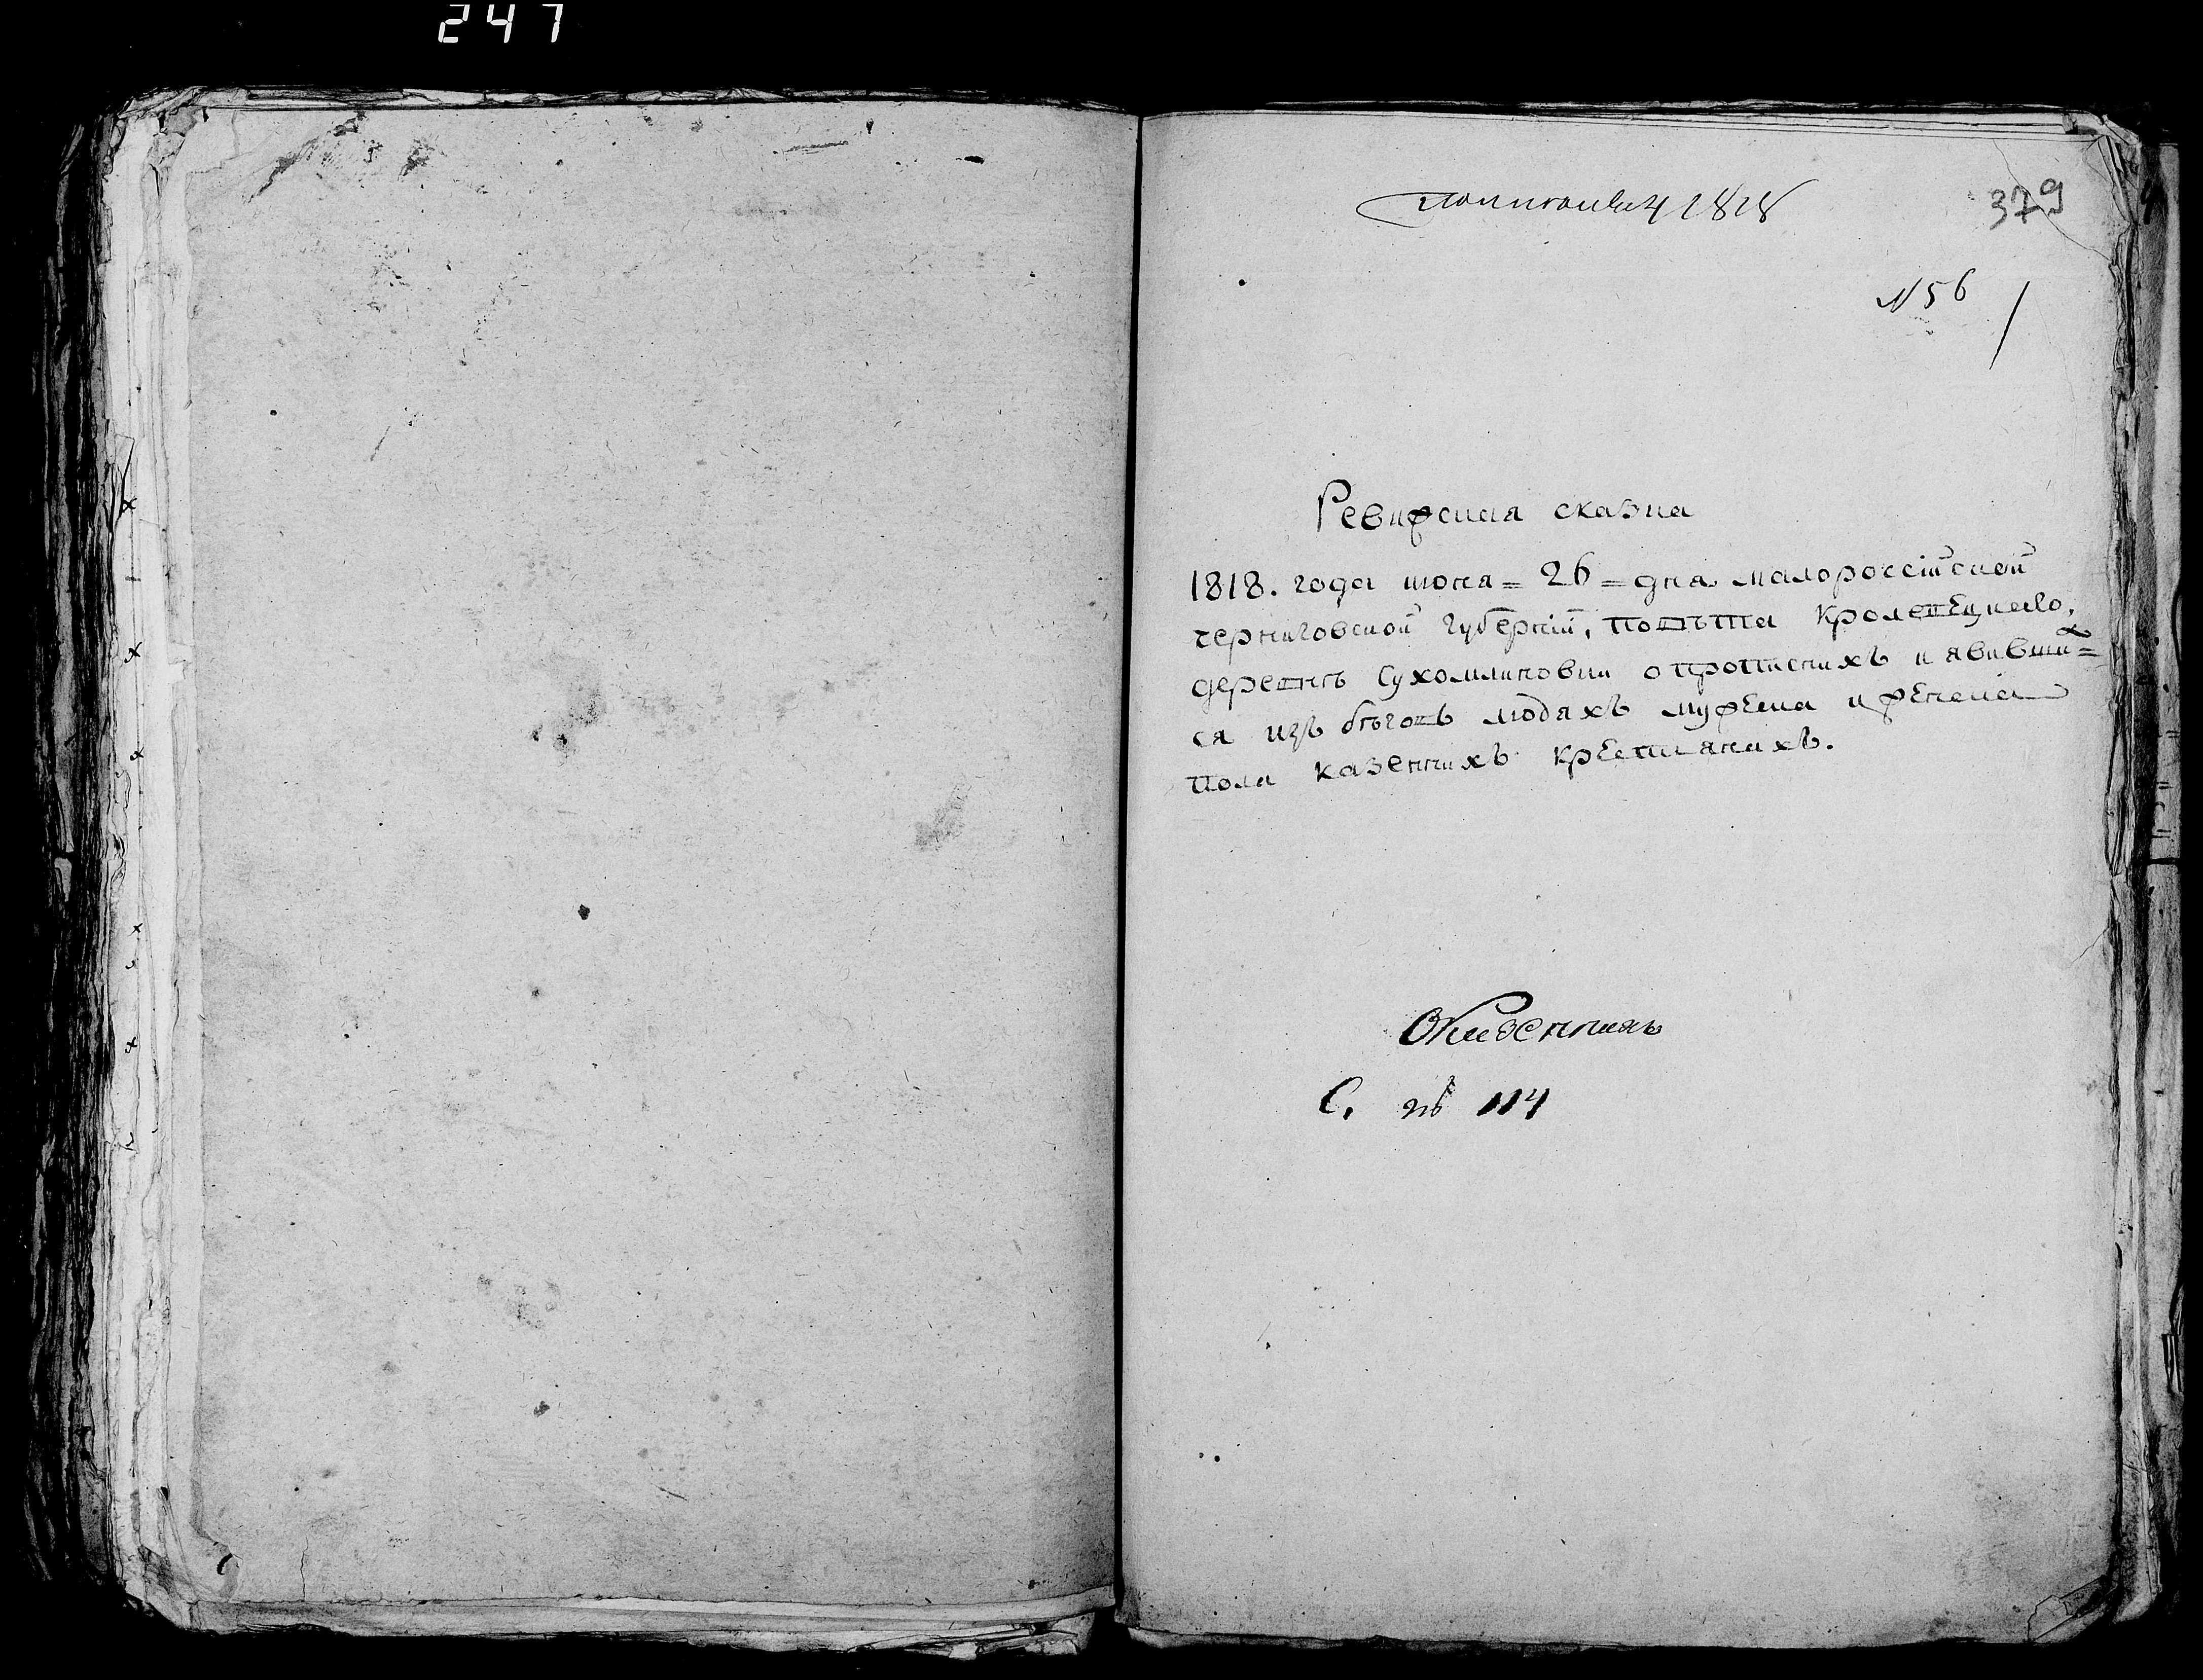 247
1818
379
N 56
Ревизская сказка
1818. года июня = 26 = дня малороссійской
черниговской губерніи, повѣта кролевецкаго,
деревнѣ Сухомлиновки о прописнихъ и явивших=
ся изъ бѣговъ людахъ мужеска и женска
пола казеннихъ крестянахъ.
С. 114